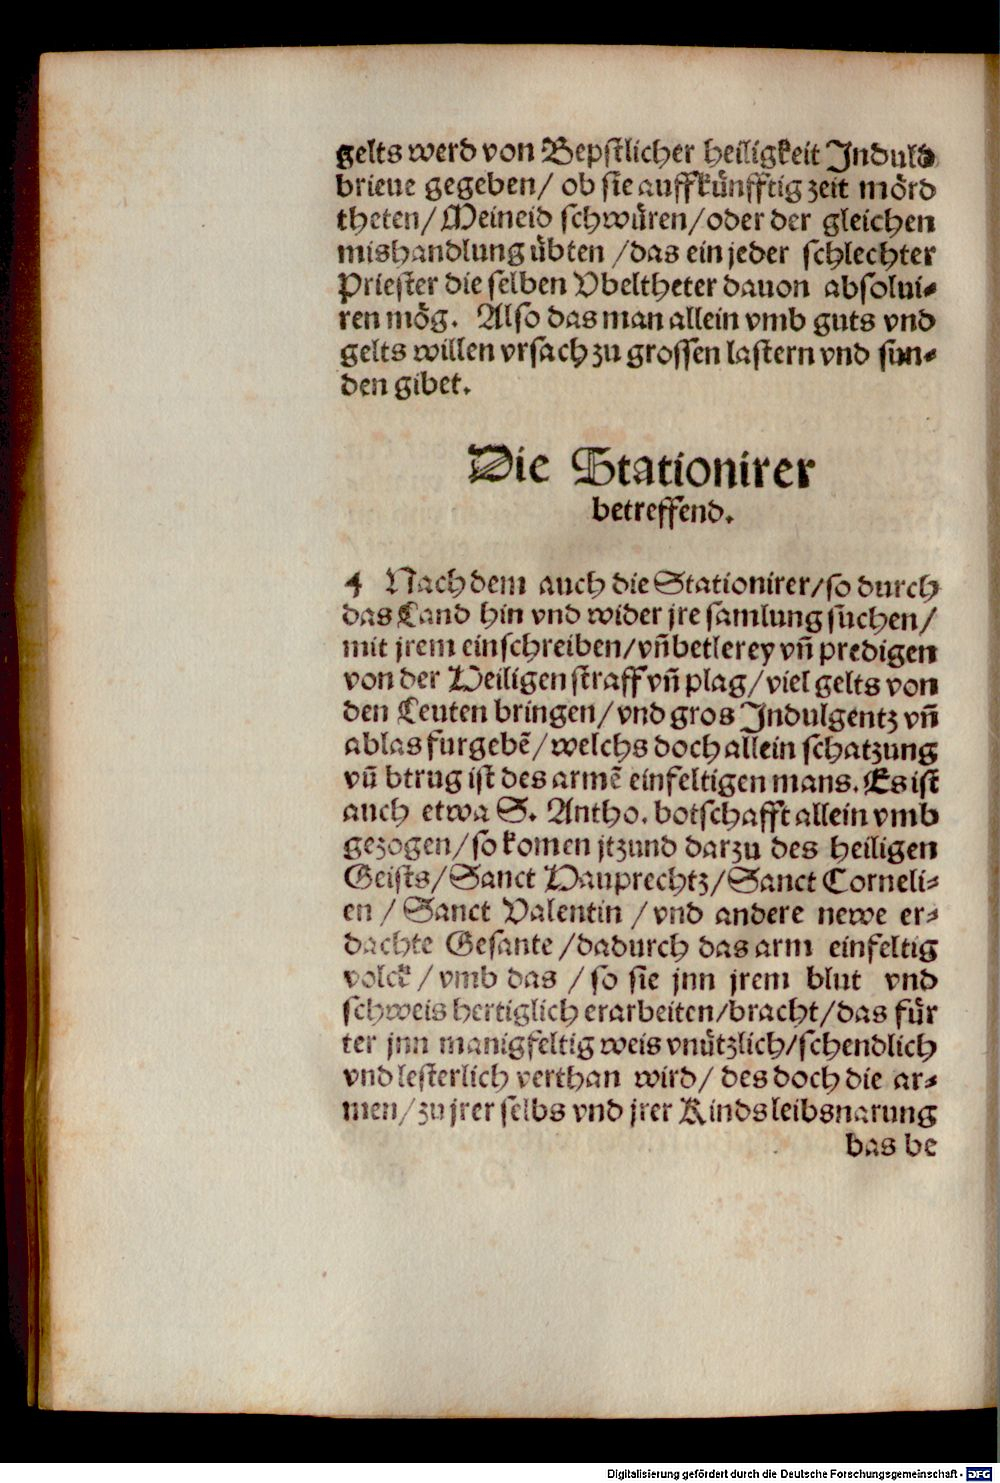 gelts werd von Bepstlicher heiligkeit Induld
brieue gegeben/ ob sie auffkünfftig zeit mörd
theten/ Meineid schwüren/oder der gleichen
mishandlung übten /das ein jeder schlechter
Priester die selben Vbeltheter dauon absolui⸗
ren mög. Also das man allein vmb guts vnd
gelts willen vrsach zu grossen lastern vnd sun⸗
den gibet.
Die Stationirer
betreffend.
4 Nach dem auch die Stationirer/so durch
das Land hin vnd wider jre samlung suchen/
mit jrem einschreiben/vñ betlerey vñ predigen
von der Heiligen straff vñ plag/viel gelts von
den Leuten bringen/vnd gros Indulgentz vñ
ablas furgebẽ/welchs doch allein schatzung
vñ btrug ist des armẽ einfeltigen mans. Es ist
auch etwa S. Antho. botschafft allein vmb
gezogen/so komen jtzund darzu des heiligen
Geists/Sanct Hauprechtz/Sanct Corneli⸗
en / Sanct Valentin /vnd andere newe er⸗
dachte Gesante /dadurch das arm einfeltig
volck/vmb das /so sie jnn jrem blut vnd
schweis hertiglich erarbeiten/bracht/das für
ter jnn manigfeltig weis vnützlich/schendlich
vnd lesterlich verthan wird/ des doch die ar⸗
men/zu jrer selbs vnd jrer Kinds leibsnarung
bas be
Digitalisierung gefördert durch die Deutsche Forschungsgemeinschaft - DFG